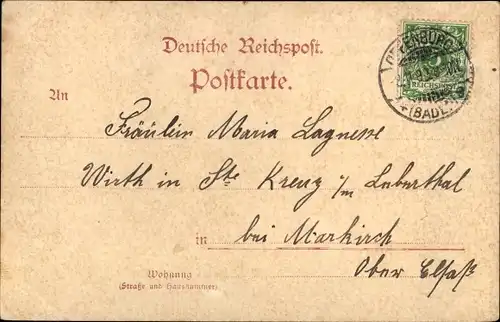 Deutsche Reichspost.
Postkarte.
OFFENBURG
REICHSPOST
(BADEN)
An
Fräulein Maria Lagnesse
Wirth in Ste Kreuz i/m Leberthal
in bei Markirch
Ober Elsaß
Wohnung
(Straße und Hausnummer)